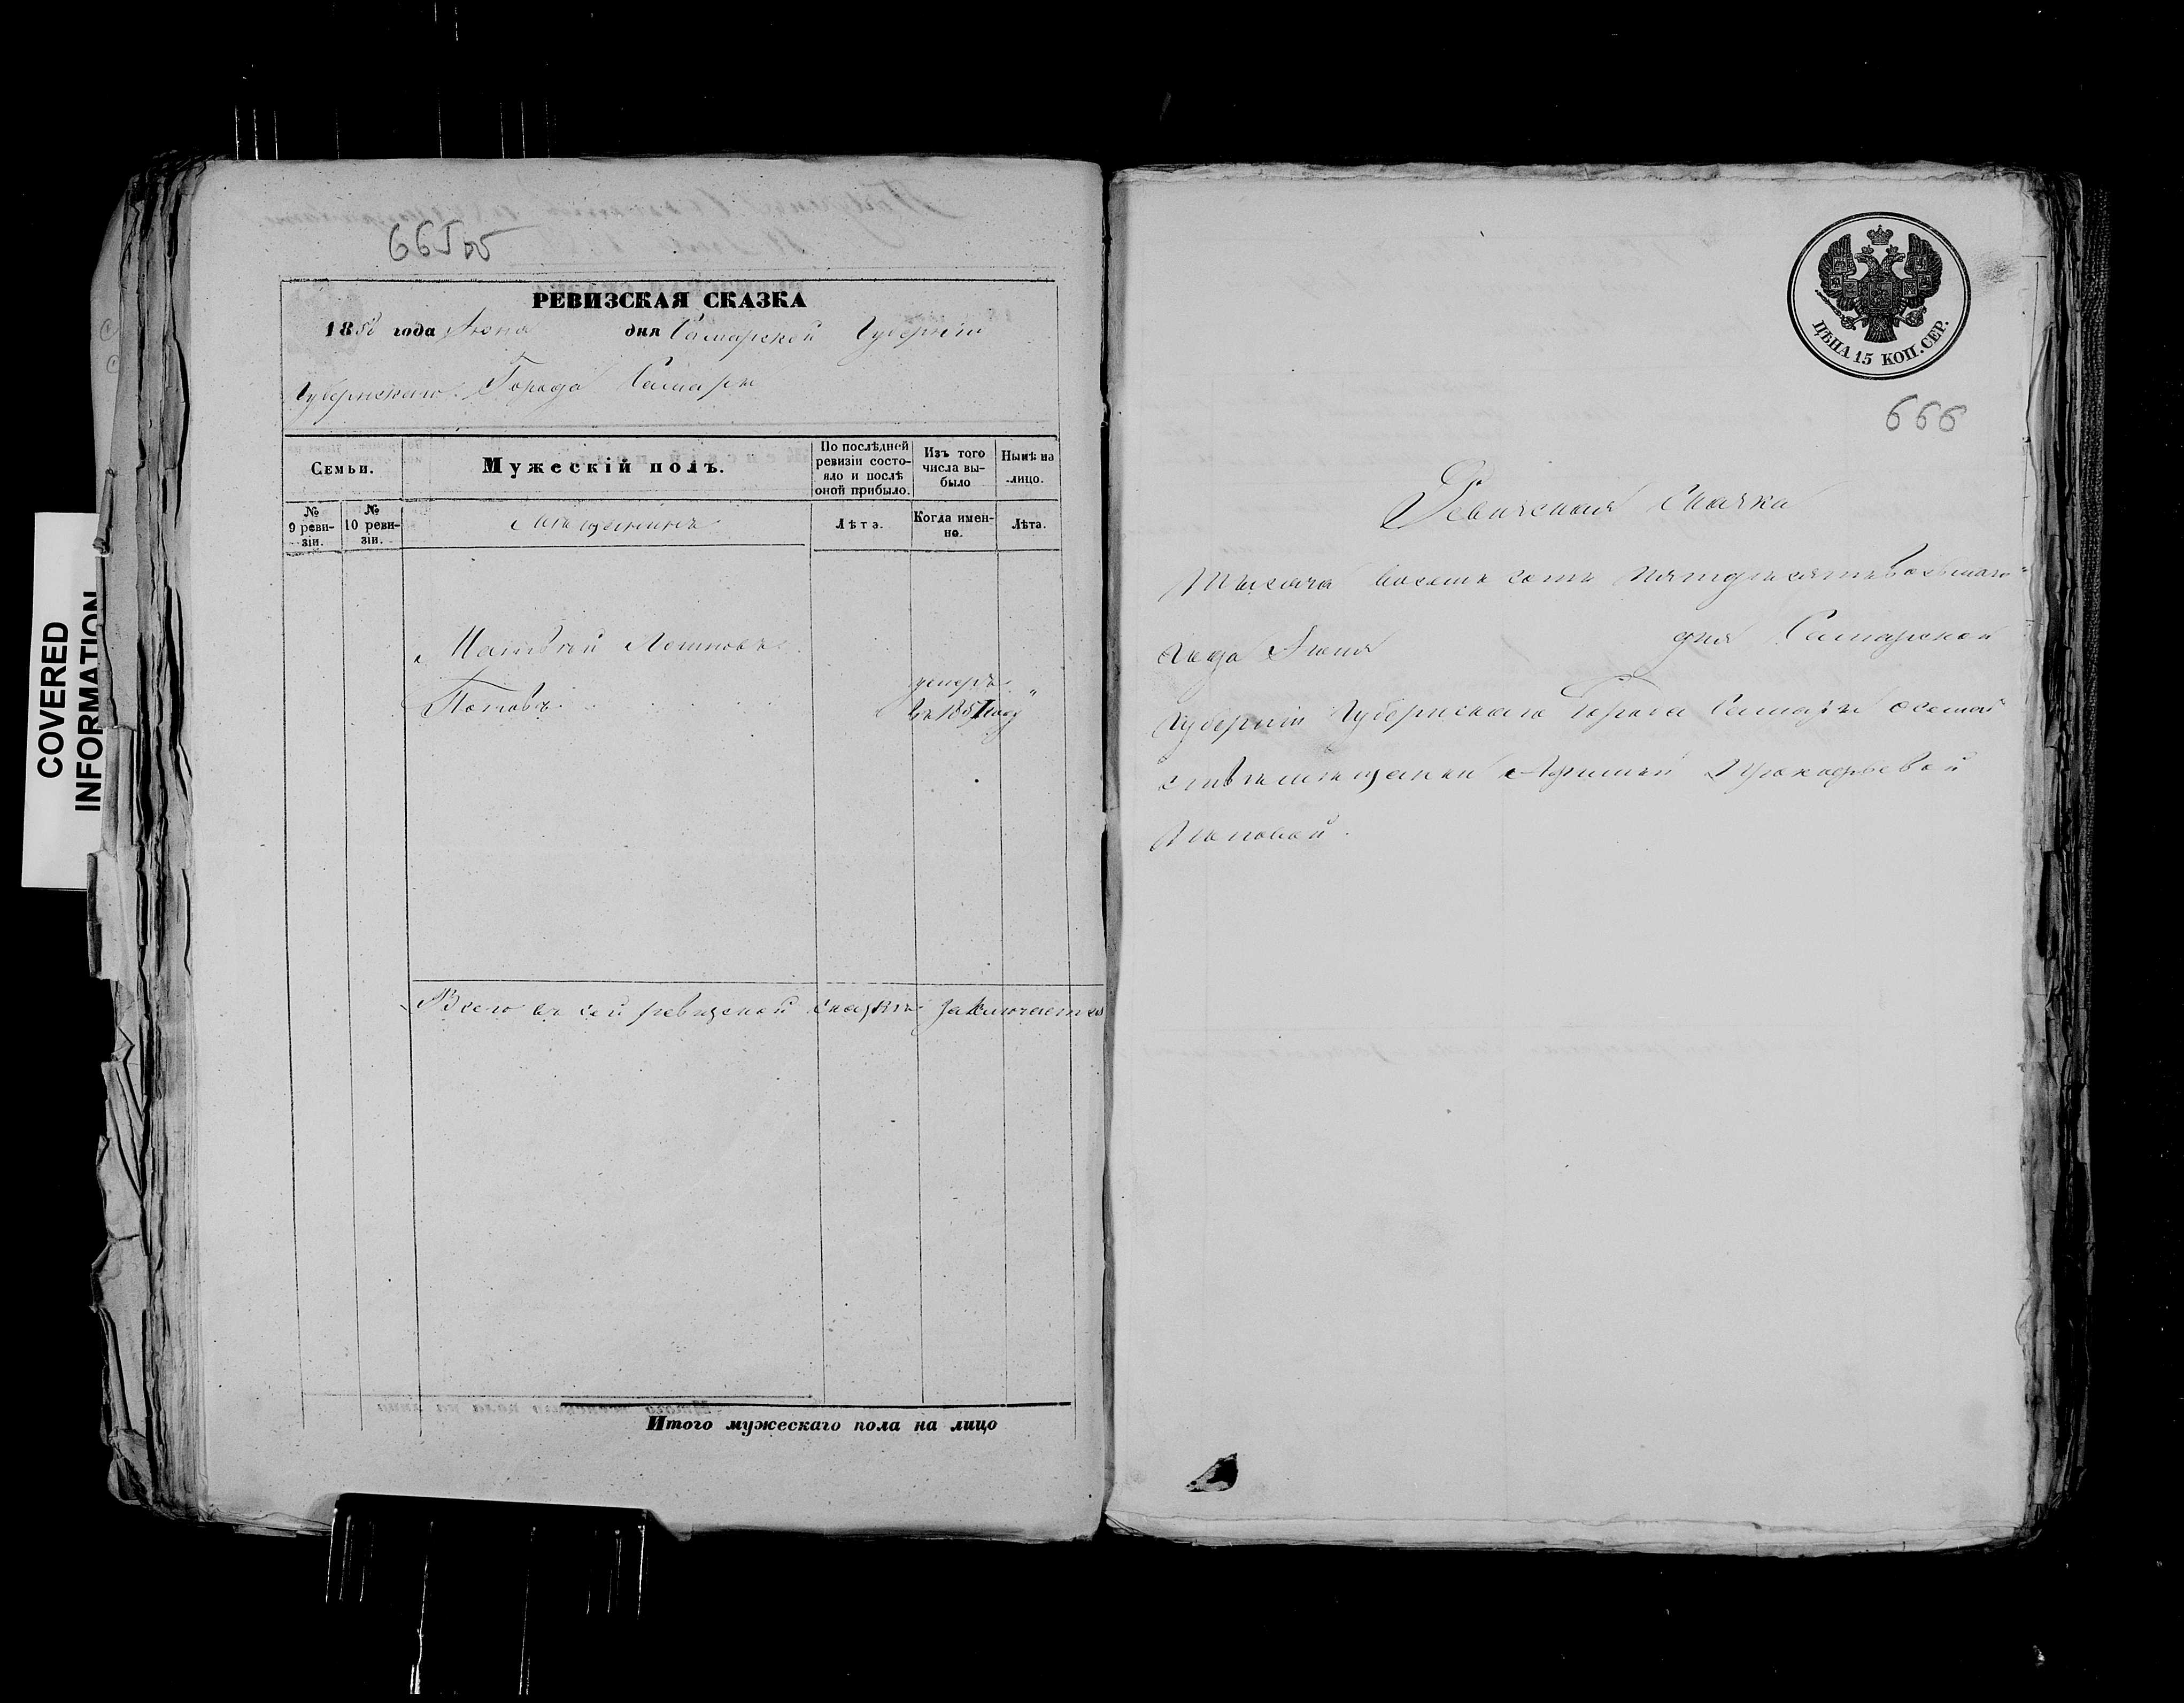 665 об
РЕВИЗСКАЯ СКАЗКА
1858 года Июня дня Самарской Губерніи
Губернскаго Города Самары
Семьи.
Мужескій полъ.
По послѣдней ревизіи состо-
яло и послѣ
оной прибыло.
Изъ того
числа вы-
было
Нынѣ на
лицо.
№
9 реви-
зіи.
№
10 реви-
зіи.
Мѣщанинъ
Лѣта.
Когда имен-
но.
Лѣта.
Матвѣй
Поповъ
умеръ
въ 1857 году
"
Всего въ сей ревизской сказкѣ заключается
Итого мужескаго пола на лицо
ЦѢНА 15 КОП. СЕР.
666
Ревизская Сказка
Тысяча восемь сотъ пятдесятъ восьмаго
года Июня дня Самарской
Губерніи Губернскаго Города Самары о самой
мѣщанки Прокофьевой
Поповой.
COVERED
INFORMATION